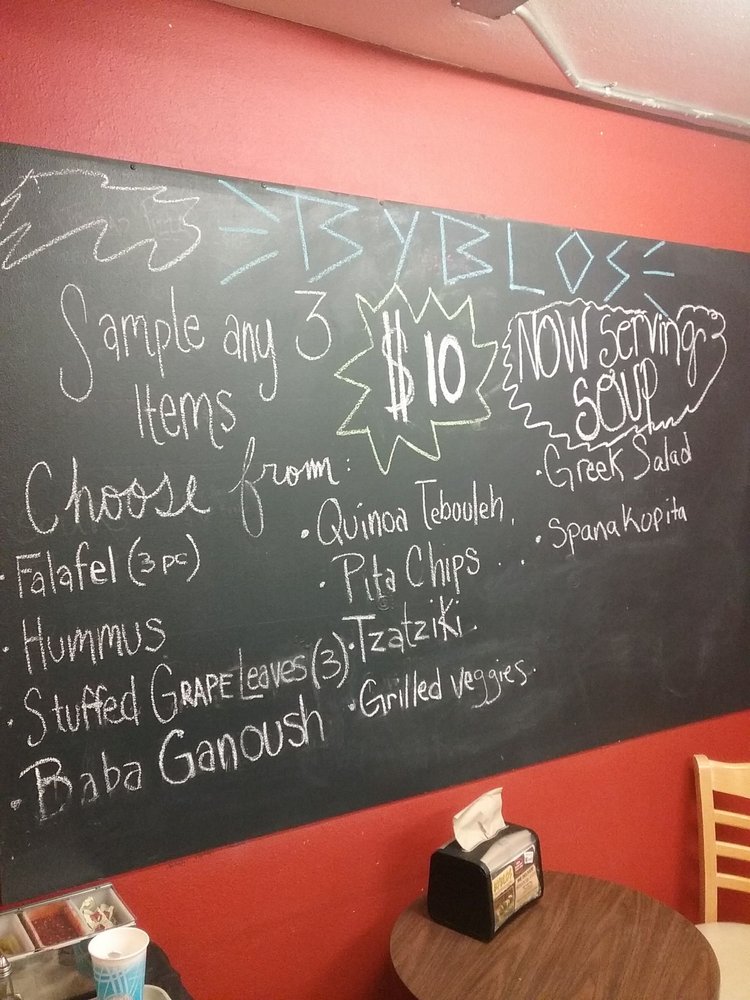 BYBLOS
Sample any 3
Items
$10
NOW Serving
SOUP
Choose from:
· Falafel (3 pc)
· Hummus
· Stuffed GRAPE Leaves (3)
· Baba Ganoush
· Quinoa Tebouleh
· Pita Chips
· Tzatziki
· Grilled veggies
· Greek Salad
· Spanakopita